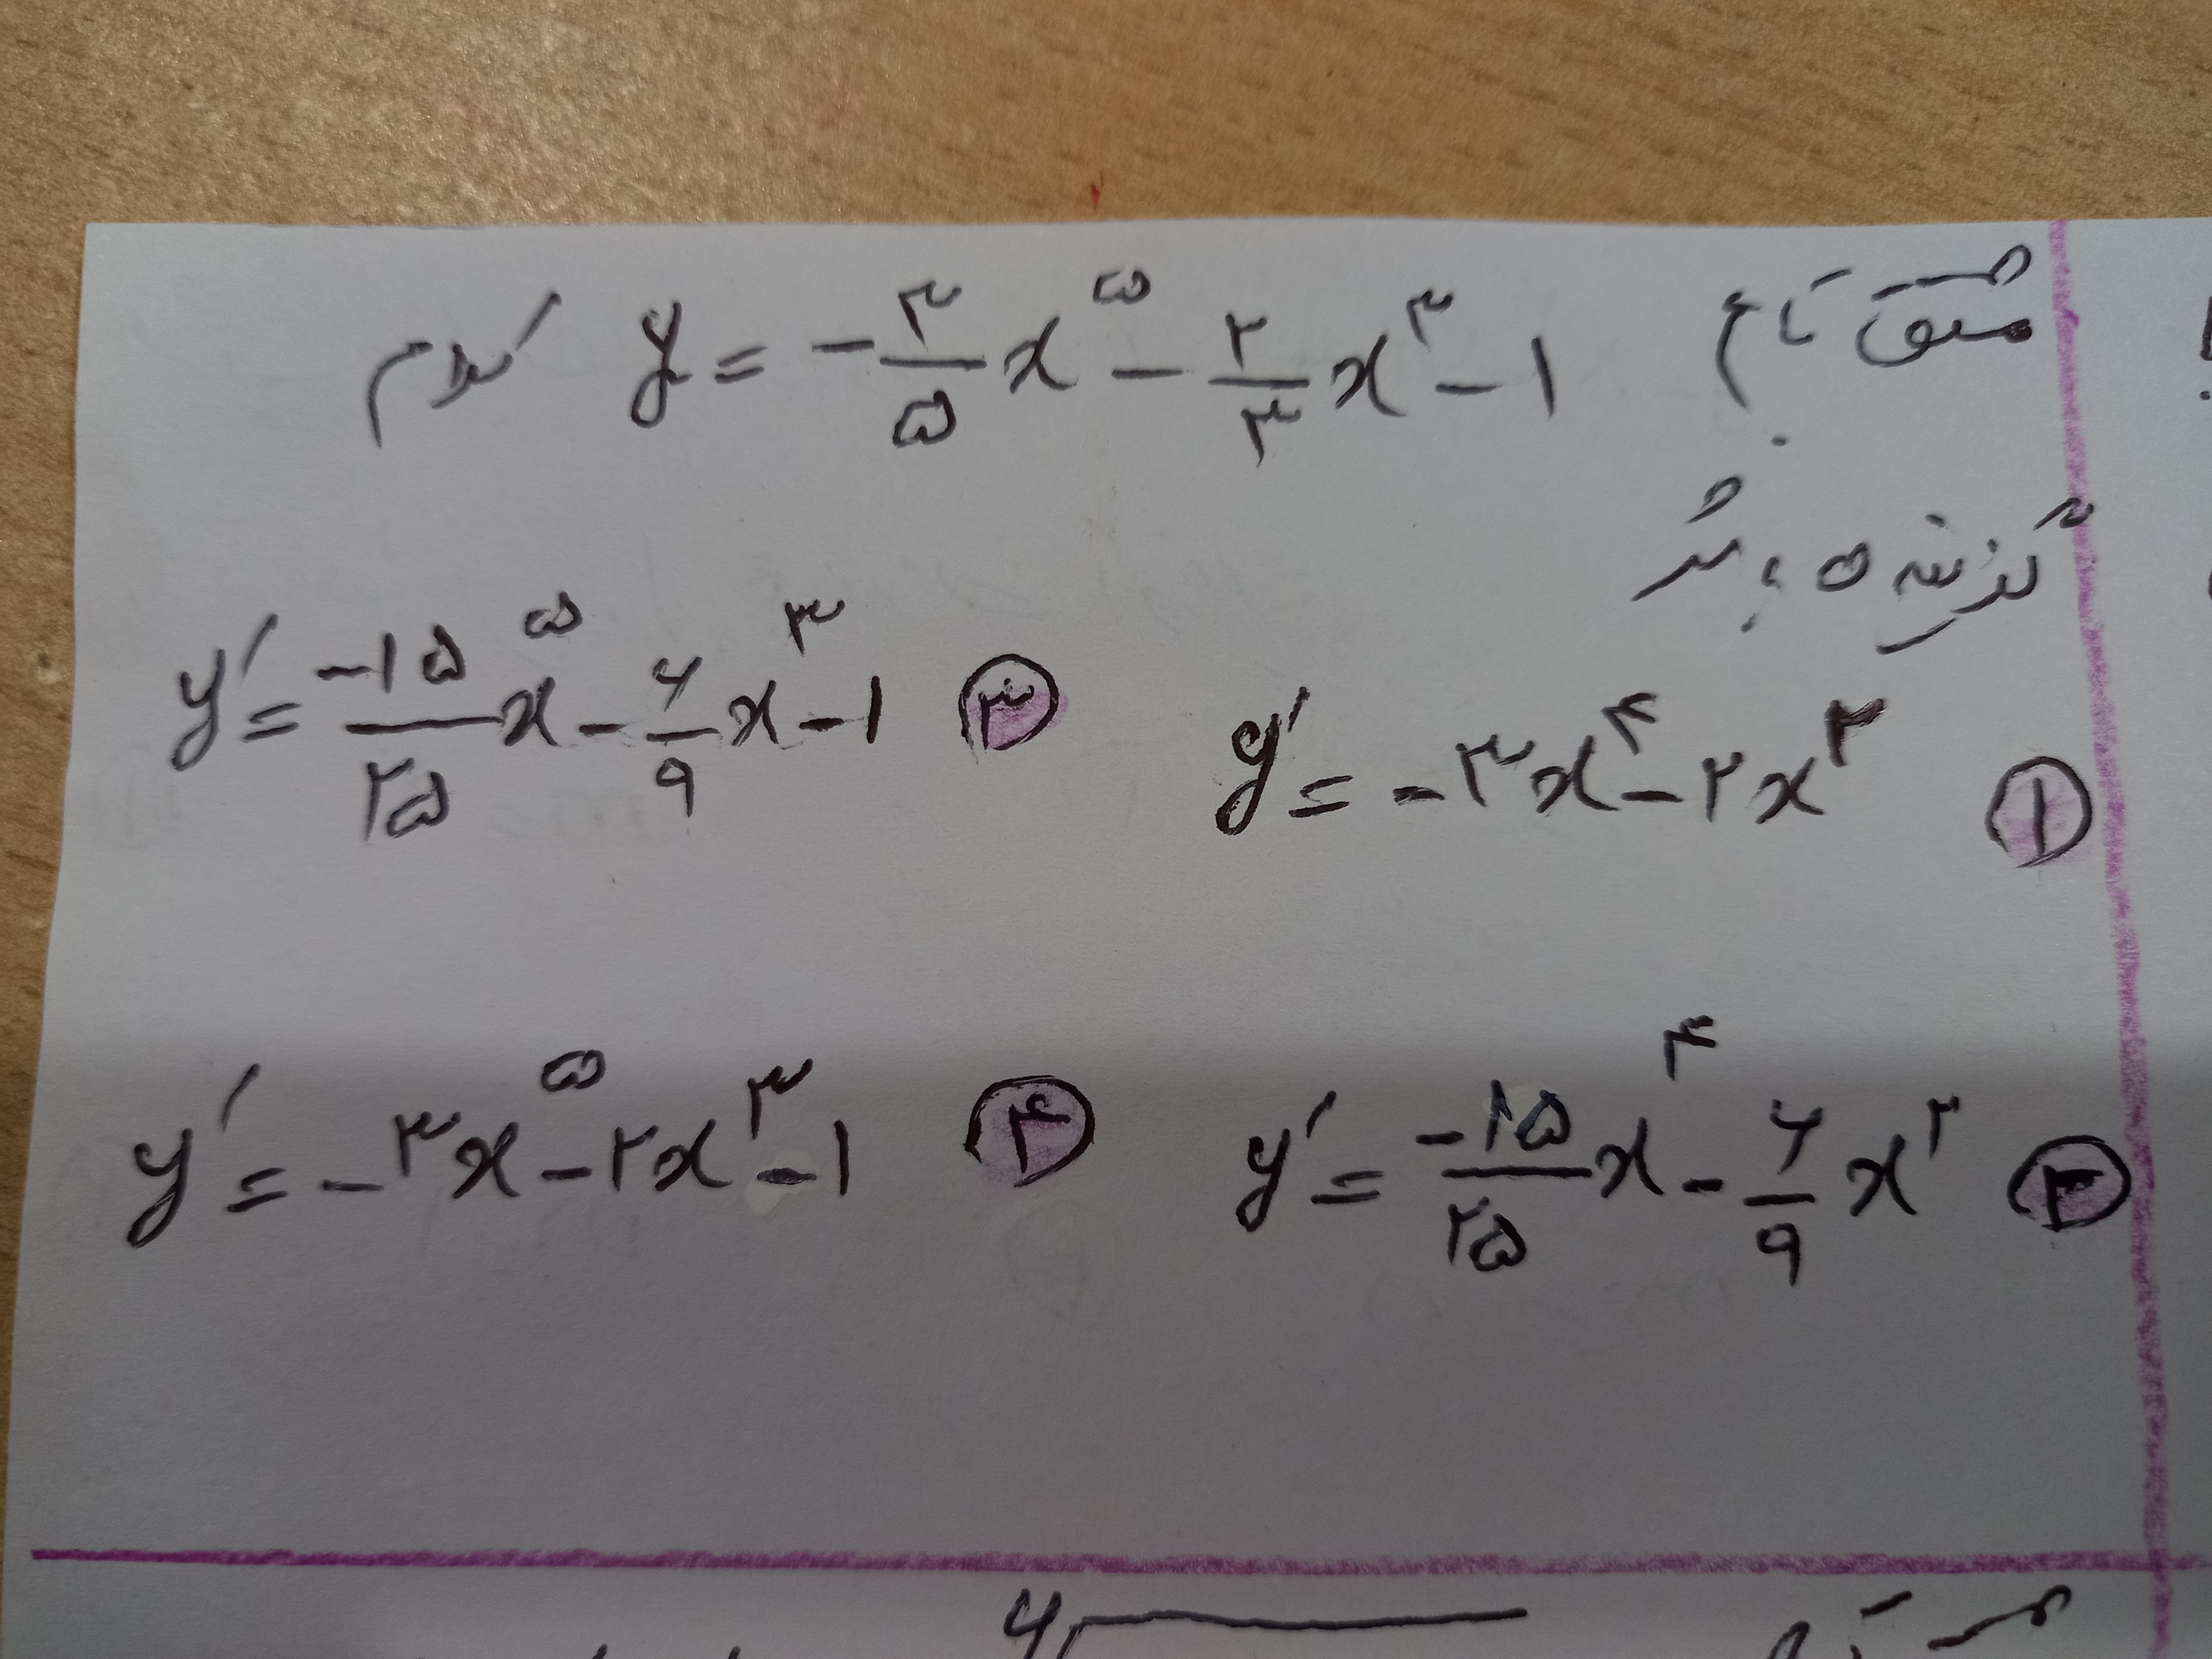 مشتق تابع y = -۳/۵ x^۵ - ۲/۳ x^۳ - ۱ کدام
گزینه می باشد
① y' = -۳x^۴ - ۲x^۲
③ y' = -۱۵/۲۵ x^۵ - ۶/۹ x^۳ - ۱
② y' = -۱۵/۲۵ x^۴ - ۶/۹ x^۲
④ y' = -۳x^۵ - ۲x^۳ - ۱